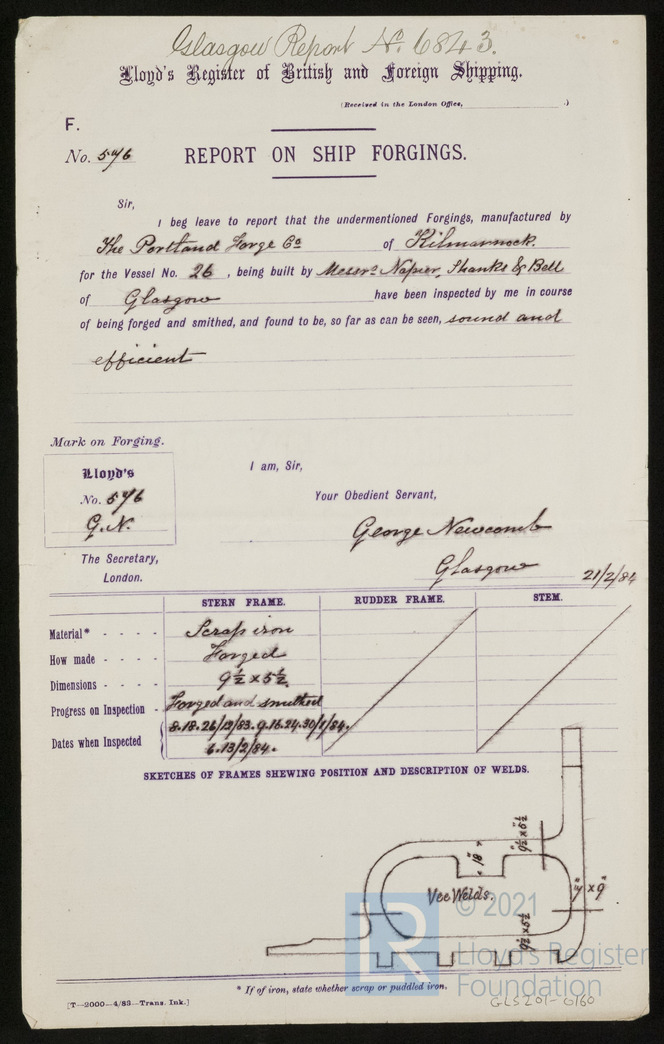 Glasgow Report No. 6843.
Lloyd's Register of British and Foreign Shipping.
(Received in the London Office, .)
F.
No. 546 REPORT ON SHIP FORGINGS.
Sir,
I beg leave to report that the undermentioned Forgings, manufactured by
The Portland Forge Co of Kilmarnock.
for the Vessel No. 26, being built by Messrs Napier, Shanks & Bell
of Glasgow have been inspected by me in course
of being forged and smithed, and found to be, so far as can be seen, sound and
efficient
Mark on Forging.
Lloyd's
No. 546
G.N.
I am, Sir,
Your Obedient Servant,
George Newcomb
Glasgow 21/2/84
The Secretary,
London.
STERN FRAME. RUDDER FRAME. STEM.
Material* - - - - Scrap iron
How made - - - - Forged
Dimensions - - - - 9½ x 5½
Progress on Inspection - Forged and smithed
Dates when Inspected 8.18.26/12/83. 9.16.24.30/1/84.
6.13/2/84.
SKETCHES OF FRAMES SHEWING POSITION AND DESCRIPTION OF WELDS.
"18"
9½ x 5½
Vee Welds.
7" x 9"
9½ x 5½
© 2021
LR
Lloyd's Register
Foundation
* If of iron, state whether scrap or puddled iron.
[T—2000—4/83—Trans. Ink.]
GLS201-0160